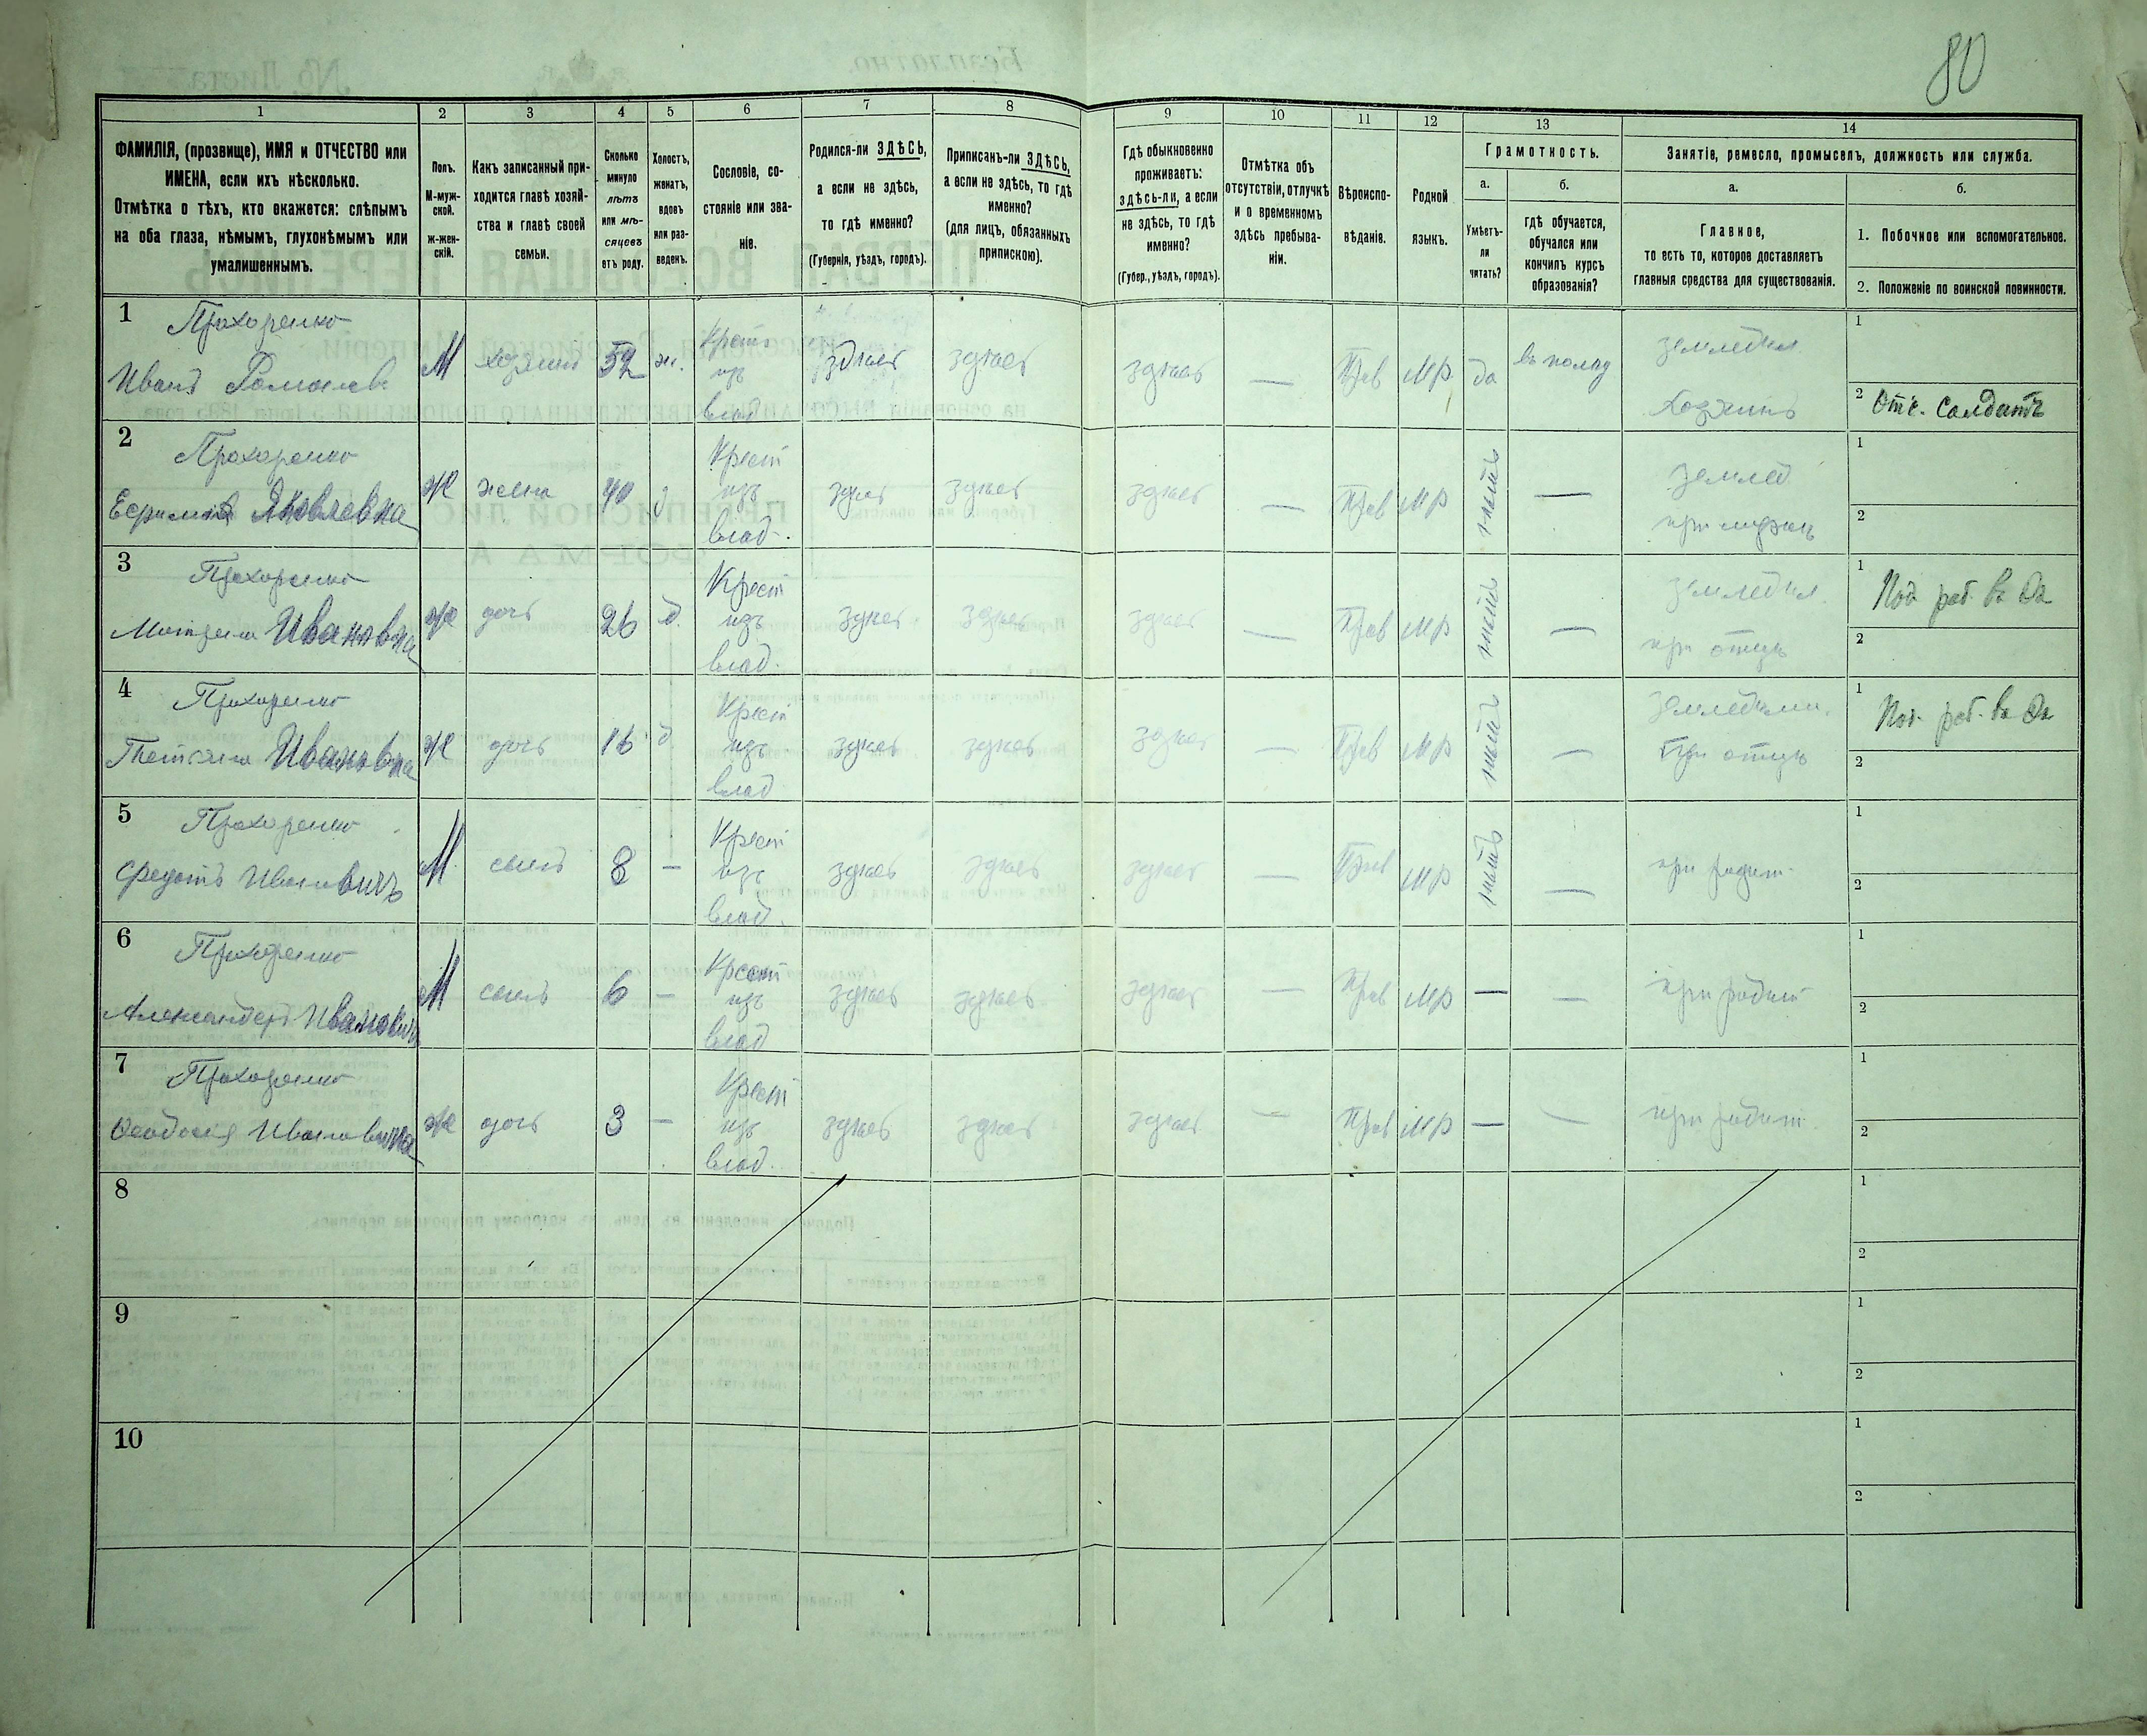 80
1 2 3 4 5 6 7 8 9 10 11 12 13 14
ФАМИЛІЯ, (прозвище), ИМЯ и ОТЧЕСТВО или
ИМЕНА, если ихъ нѣсколько.
Отмѣтка о тѣхъ, кто окажется: слѣпымъ
на оба глаза, нѣмымъ, глухонѣмымъ или
умалишеннымъ.
Полъ.
М-муж-
ской.
ж-жен-
скій.
Какъ записанный при-
ходится главѣ хозяй-
ства и главѣ своей
семьи.
Сколько
минуло
лѣтъ
или мѣ-
сяцевъ
отъ роду.
Холостъ,
женатъ,
вдовъ
или раз-
веденъ.
Сословіе, со-
стояніе или зва-
ніе.
Родился-ли ЗДѢСЬ,
а если не здѣсь,
то гдѣ именно?
(Губернія, уѣздъ, городъ).
Приписанъ-ли ЗДѢСЬ,
а если не здѣсь, то гдѣ
именно?
(для лицъ, обязанныхъ
припискою).
Гдѣ обыкновенно
проживаетъ:
здѣсь-ли, а если
не здѣсь, то гдѣ
именно?
(Губер., уѣздъ, городъ).
Отмѣтка объ
отсутствіи, отлучкѣ
и о временномъ
здѣсь пребыва-
ніи.
Вѣроиспо-
вѣданіе.
Родной
языкъ.
Грамотность.
а.
Умѣетъ-
ли
читать?
б.
гдѣ обучается,
обучался или
кончилъ курсъ
образованія?
Занятіе, ремесло, промыселъ, должность или служба.
а.
Главное,
то есть то, которое доставляетъ
главныя средства для существованія.
б.
1. Побочное или вспомогательное.
2. Положеніе по воинской повинности.
1 Прохоренко
Иванъ Романовъ
М хозяинъ 52 ж.
Крест
изъ
влад
здѣсь здѣсь здѣсь — Прав МР да
земледѣл
Хозяинъ
1
2 Отс. Солдатъ
2 Прохоренко
Яковлевна
Ж жена 40
Крест
изъ
влад.
здѣсь здѣсь здѣсь — Прав МР нѣтъ —
землед
при мужѣ
1
2
3 Прохоренко
Матрена Ивановна
Ж дочь 26 д.
Крест
изъ
влад.
здѣсь здѣсь здѣсь — Прав МР нѣтъ —
земледѣл.
при отцѣ
1 Под раб.
2
4 Прохоренко
Ивановна
Ж дочь 16 д
Крест
изъ
влад
здѣсь здѣсь здѣсь — Прав МР нѣтъ —
При отцѣ
1 Под. раб.
2
5 Прохоренко
Федотъ Ивановичъ
М сынъ 8 —
Крест
изъ
влад.
здѣсь здѣсь здѣсь — Прав МР нѣтъ —
при родит.
1
2
6 Прохоренко
Александръ Ивановичъ
М сынъ 6 —
Крест
изъ
влад
здѣсь здѣсь здѣсь — Прав МР — —
при родит
1
2
7 Прохоренко
Ѳеодосія Ивановна
Ж дочь 3 —
Крест
изъ
влад.
здѣсь здѣсь здѣсь — Прав МР — —
при родит.
1
2
8
1
2
9
1
2
10
1
2